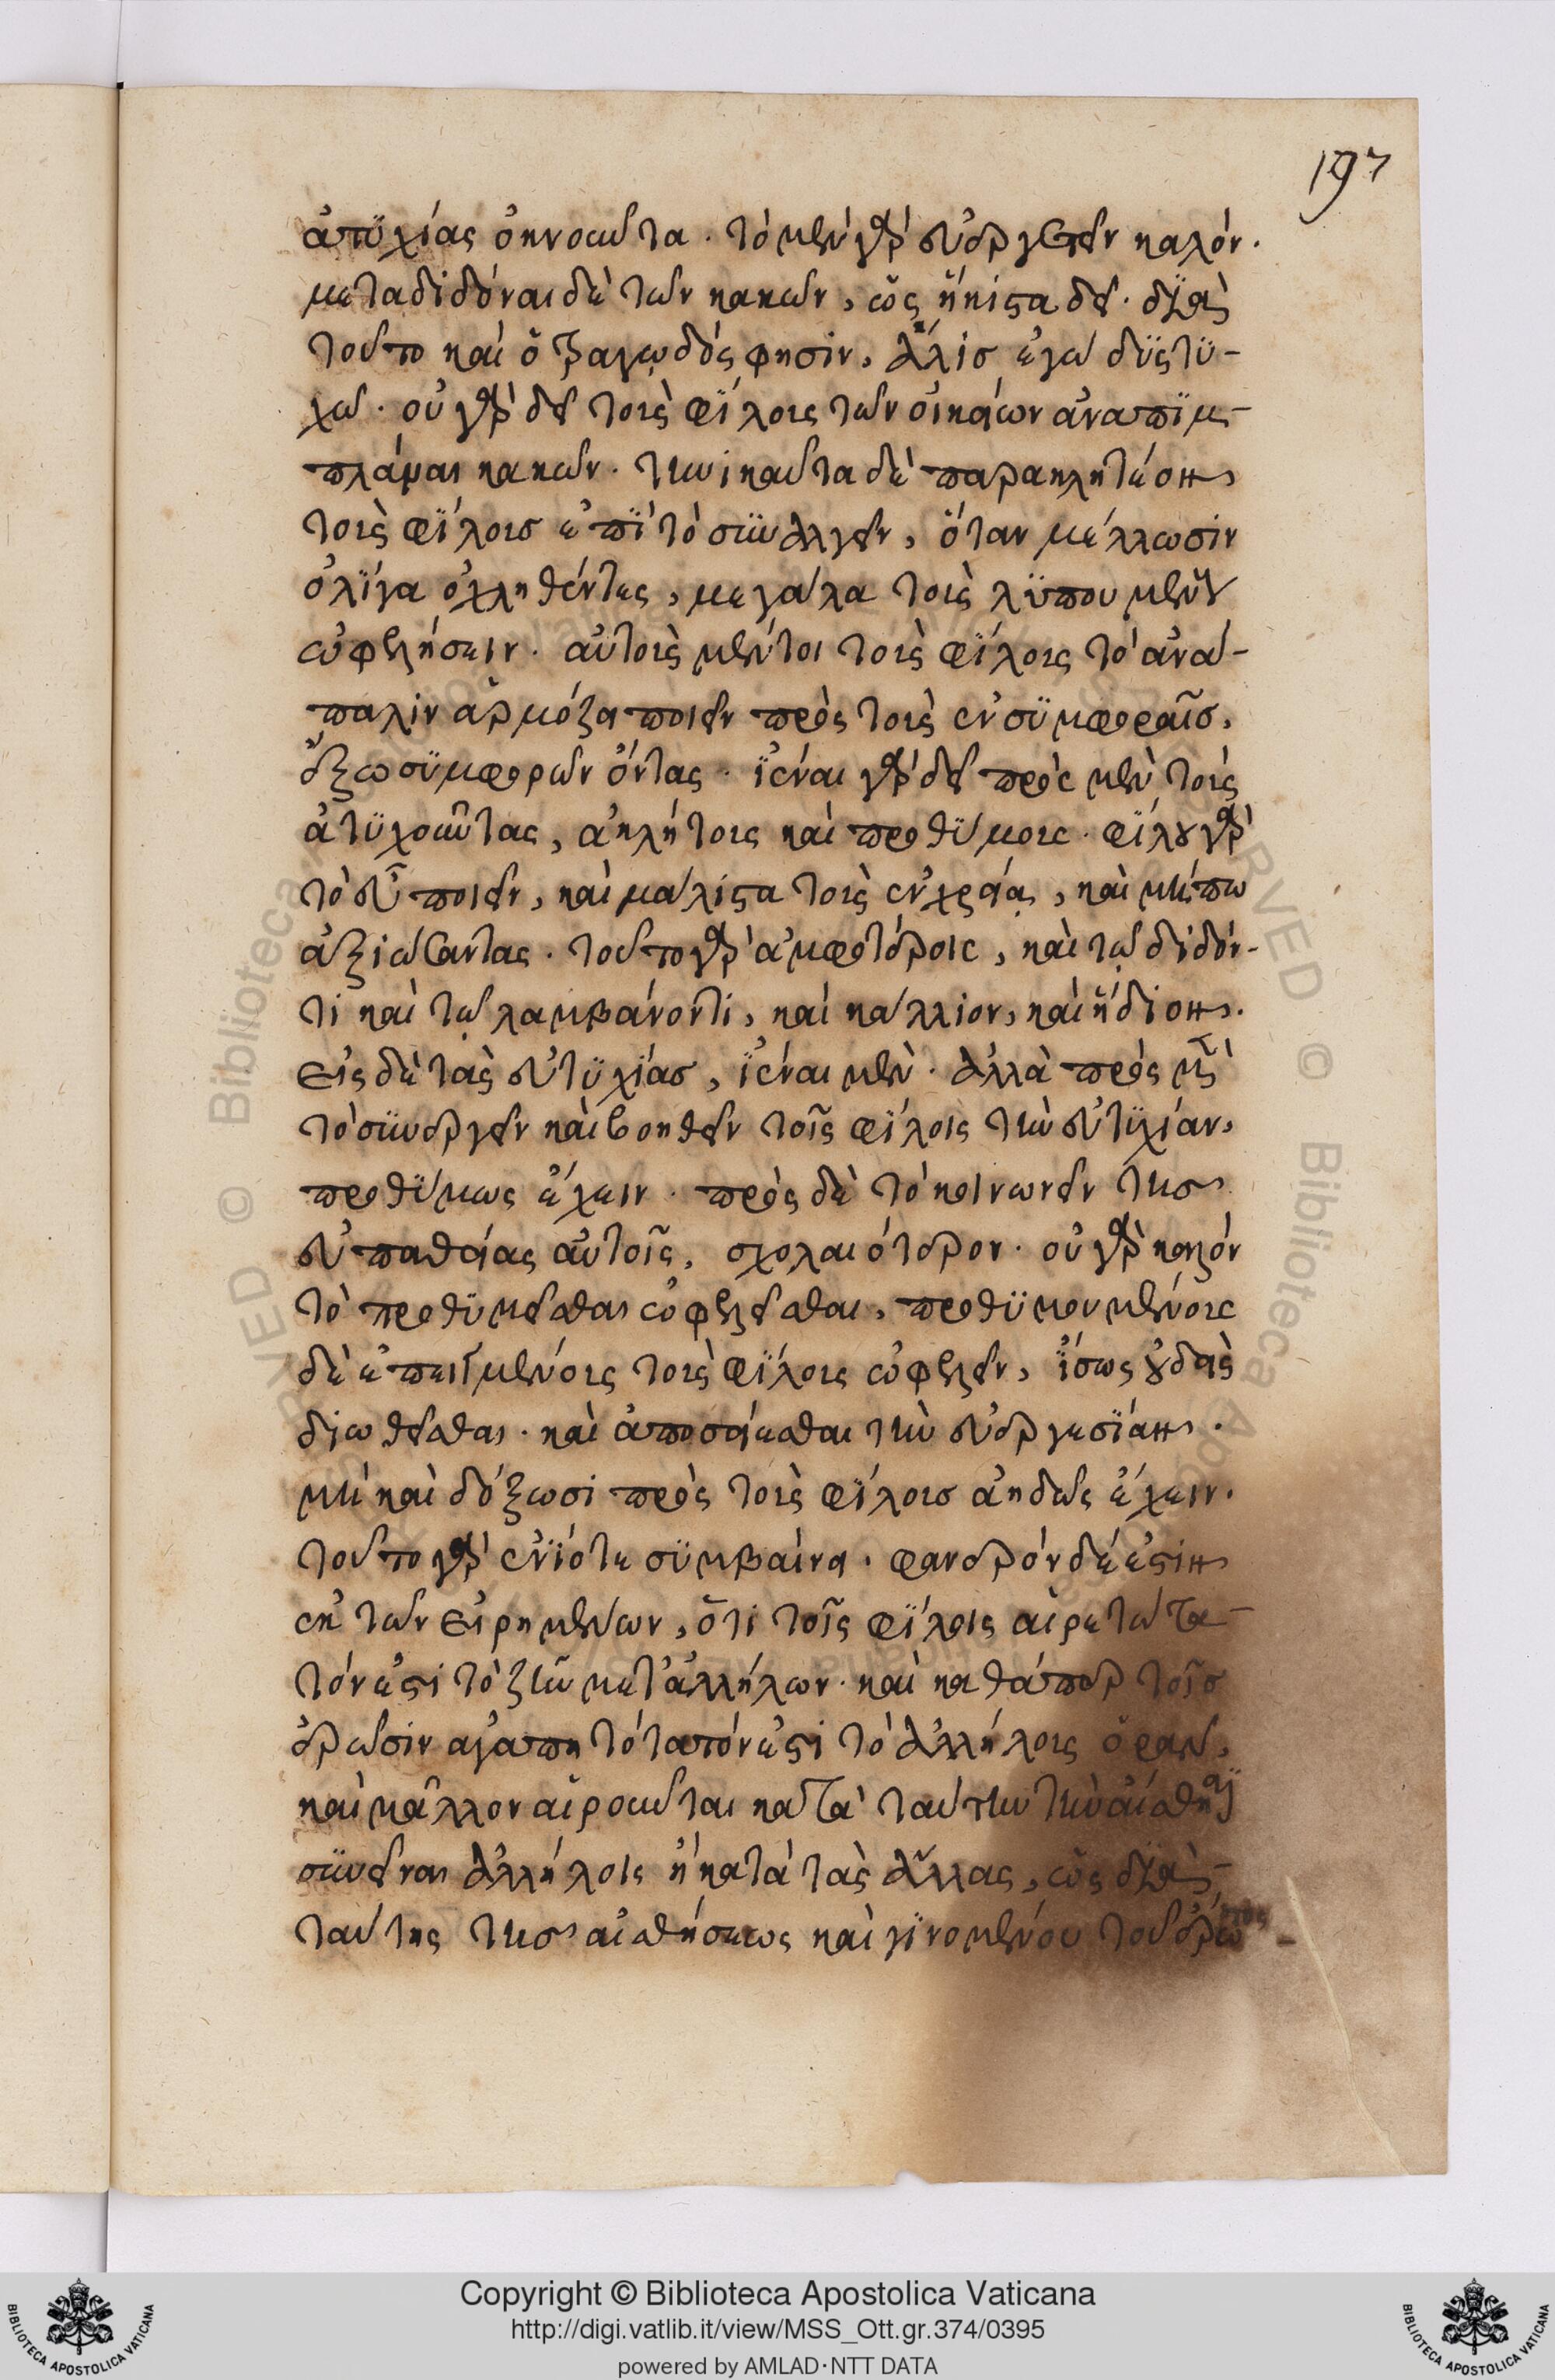 197
ἀτυχίας ὀκνοῦντα. τὸ μὲν γὰρ εὐεργετεῖν καλόν.
μεταδιδόναι δὲ τῶν κακῶν, ὡς ἥκιστα δεῖ. διὰ
τοῦτο καὶ ὁ τραγῳδός φησιν, ἅλις ἐγὼ δυςτυ-
χῶ. οὐ γὰρ δεῖ τοὺς φίλους τῶν οἰκείων ἀναπιμ-
πλάναι κακῶν. τηνικαῦτα δὲ παρακλητέον
τοὺς φίλους ἐπὶ τὸ συναλγεῖν, ὅταν μέλλωσιν
ὀλίγα ὀχληθέντες, μεγάλα τοὺς λυπουμένους
ὠφελήσειν. αὐτοὺς μέντοι τοὺς φίλους τὸ ἀνά-
παλιν ἁρμόζει ποιεῖν πρὸς τοὺς ἐν συμφοραῖς,
ἔξω συμφορῶν ὄντας. ἰέναι γὰρ δεῖ πρὸς μὲν τοὺς
ἀτυχοῦντας, ἀκλήτους καὶ προθύμους. φίλου γὰρ
τὸ εὖ ποιεῖν, καὶ μάλιστα τοὺς ἐν χρείᾳ, καὶ μήπω
ἀξιώσαντας. τοῦτο γὰρ ἀμφοτέροις, καὶ τῷ διδόν-
τι καὶ τῷ λαμβάνοντι, καὶ κάλλιον, καὶ ἥδιον.
εἰς δὲ τὰς εὐτυχίας, ἰέναι μὲν. ἀλλὰ πρὸς μὲν
τὸ συνεργεῖν καὶ βοηθεῖν τοῖς φίλοις τὴν εὐτυχίαν,
προθύμως ἔχειν. πρὸς δὲ τὸ κοινωνεῖν τῆς
εὐπαθείας αὐτοῖς, σχολαιότερον. οὐ γὰρ καλόν
τὸ προθυμεῖσθαι ὠφελεῖσθαι, προθυμουμένους
δὲ ἐπειγμένους τοὺς φίλους ὠφελεῖν, ἴσως οὐδεὶς
διωθεῖσθαι. καὶ ἀποσείεσθαι τὴν εὐεργεσίαν.
μὴ καὶ δόξωσι πρὸς τοὺς φίλους ἀηδῶς ἔχειν.
τοῦτο γὰρ ἐνίοτε συμβαίνει. φανερὸν δέ ἐστιν
ἐκ τῶν εἰρημένων, ὅτι τοῖς φίλοις αἱρετώτα-
τόν ἐστι τὸ ζῆν μετ' ἀλλήλων. καὶ καθάπερ τοῖς
ἐρῶσιν ἀγαπητότατόν ἐστι τὸ ἀλλήλους ὁρᾶν,
καὶ μᾶλλον αἱροῦνται κατὰ ταύτην τὴν αἴσθησιν
συνεῖναι ἀλλήλοις ἢ κατὰ τὰς ἄλλας, ὡς διὰ
ταύτης τῆς αἰσθήσεως καὶ γινομένου τοῦ ἔρωτος
Copyright © Biblioteca Apostolica Vaticana
http://digi.vatlib.it/view/MSS_Ott.gr.374/0395
powered by AMLAD·NTT DATA